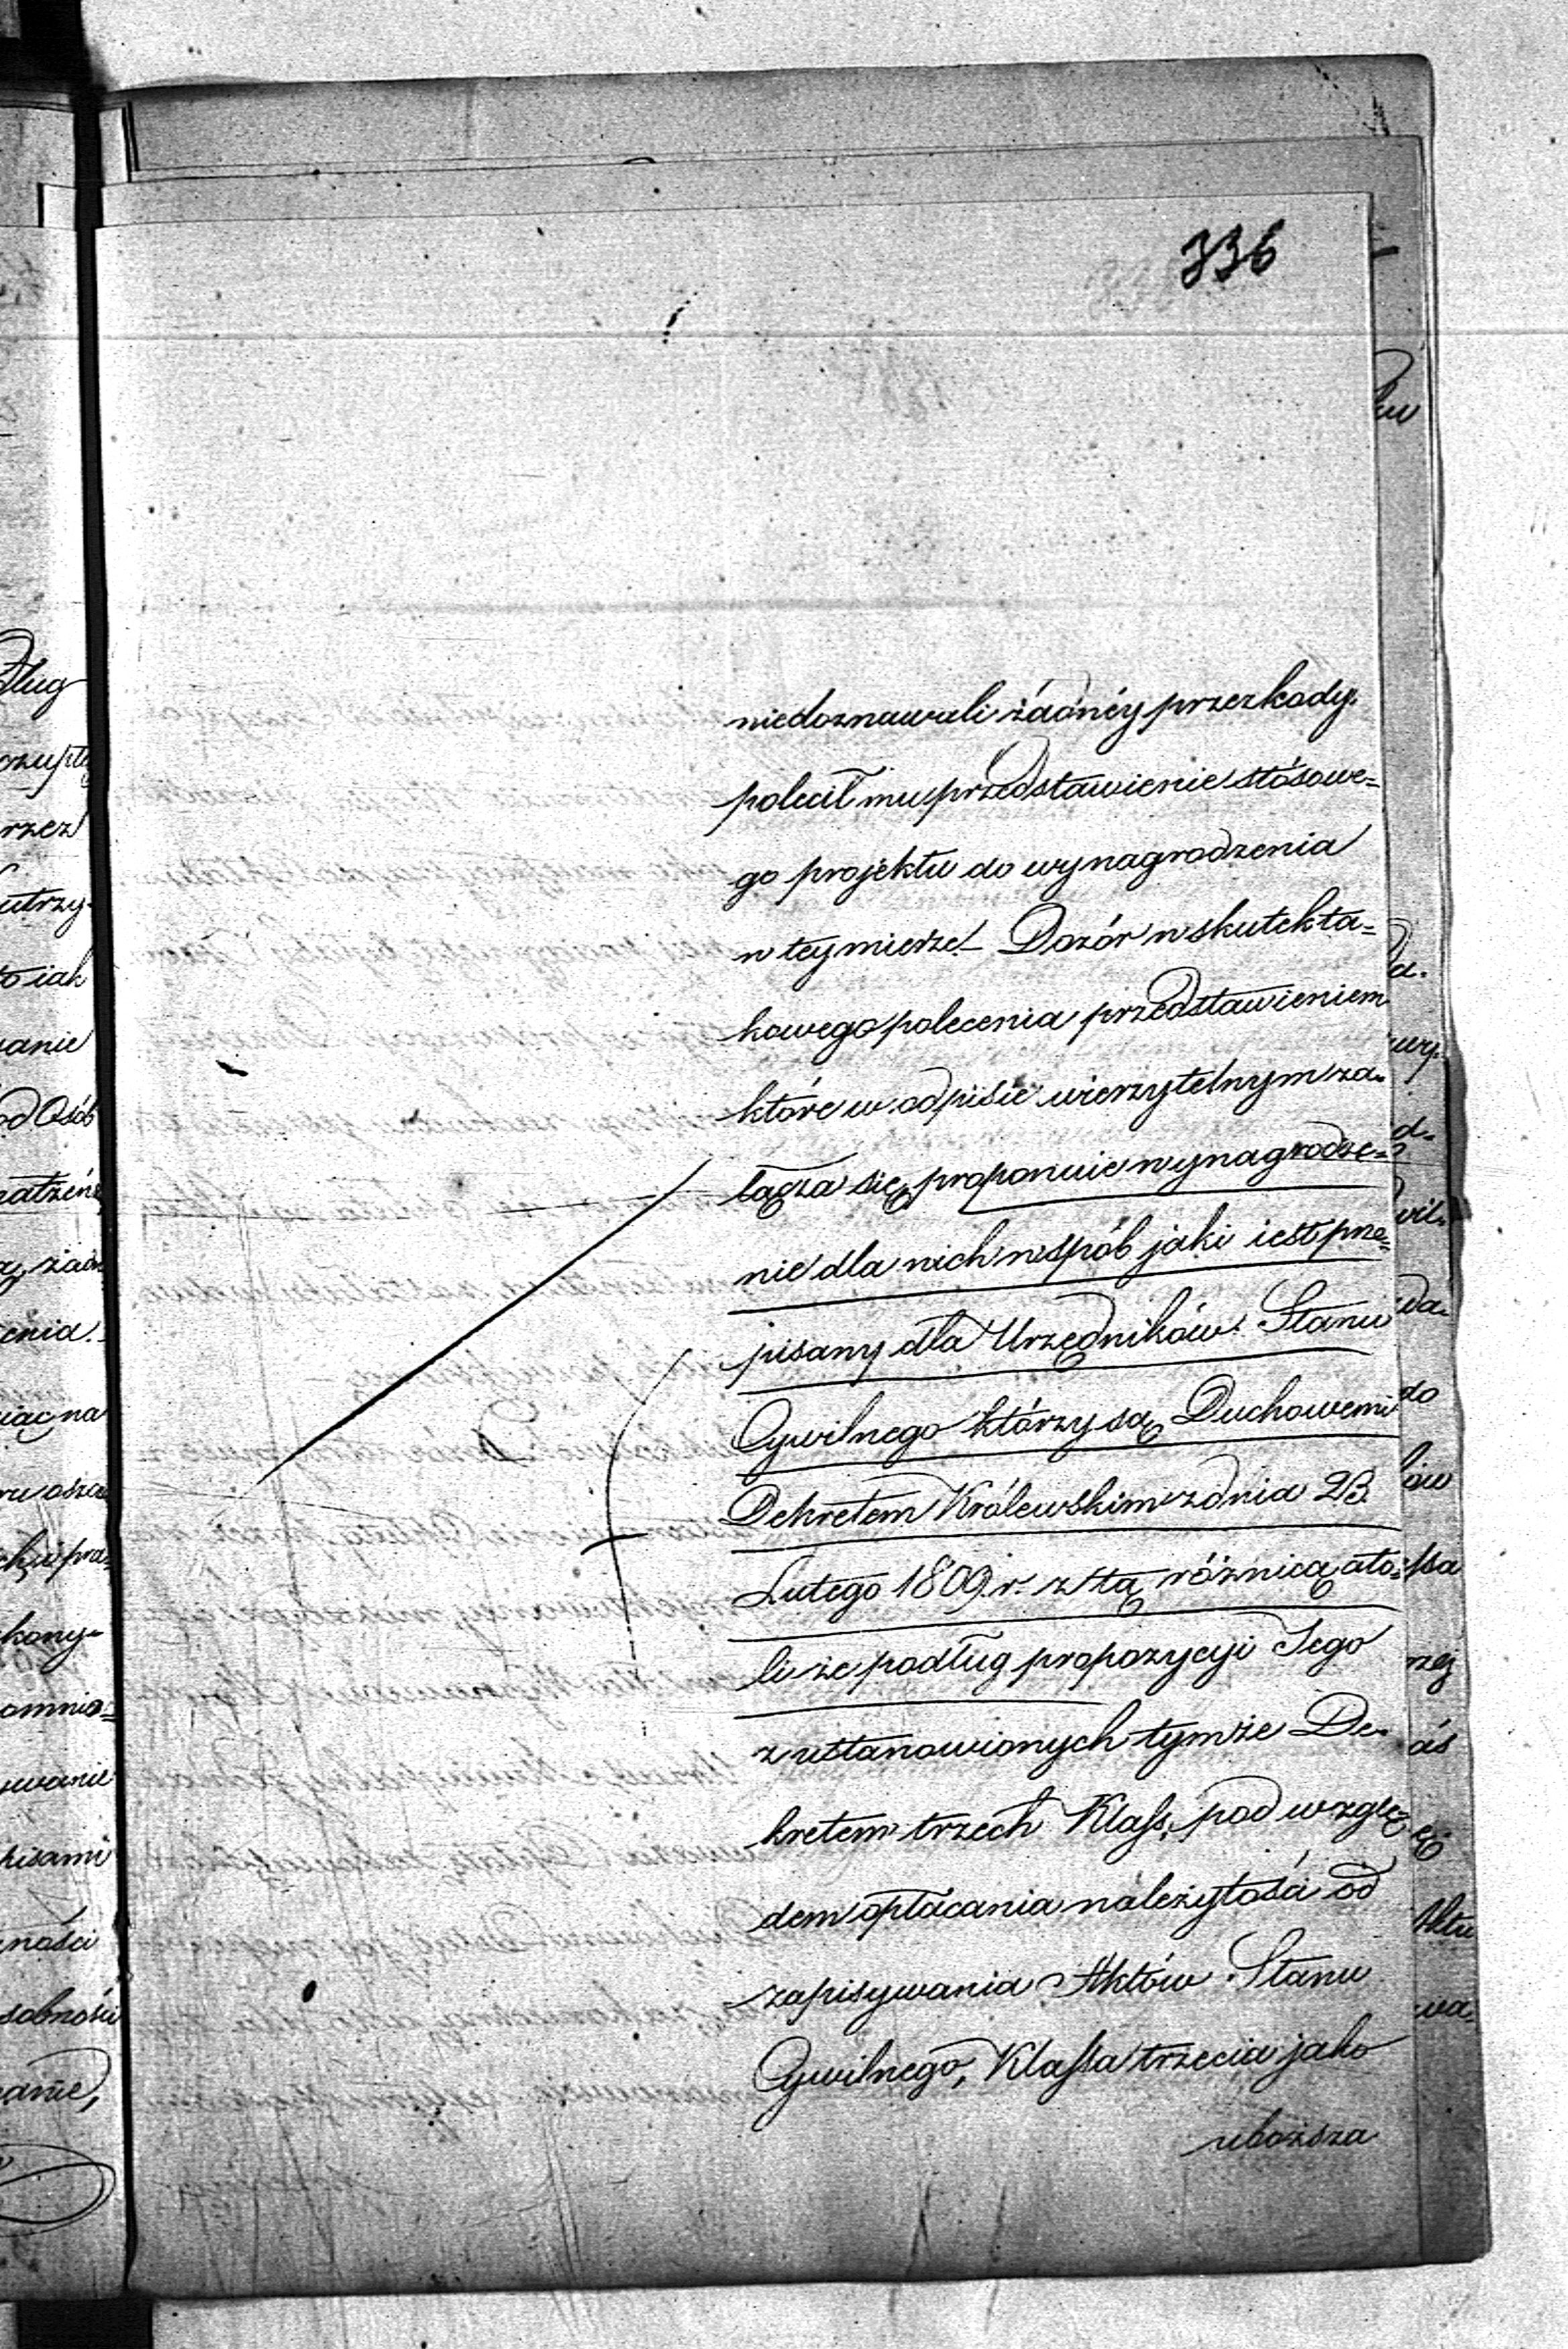 336
niedoznawali żadnéy przezkody.
polecił mu przedstawienie stósowe=
go projektu do wynagrodzenia
w tey mierze. — Dozór w skutek ta=
kowego polecenia przedstawieniem
które w odpisie wierzytelnym za=
łącza się, proponuie wynagrodze=
nie dla nich w spób jaki iest prze=
pisany dla Urzędników Stanu
Cywilnego którzy są Duchowemi
Dekretem Królewskim z dnia 23
Lutego 1809 r. z tą różnicą ato=
li że podług propozycyi Jego
z ustanowionych tymże De=
kretem trzech Klass, pod wzglę=
dem opłacania należytości od
zapisywania Aktów Stanu
Cywilnego, Klassa trzecia jako
uboższa